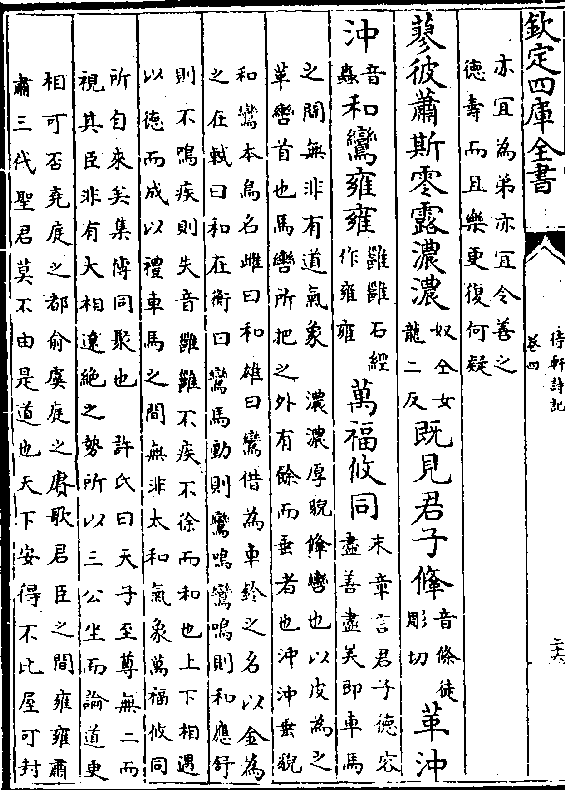 欽定四庫全書
待軒詩記
卷四
二六
亦宜為弟亦宜令善之
德壽而且樂更復何疑
蓼彼蕭斯零露濃濃奴仝女龍二反既見君子鞗音條徒彫切革沖
沖音蟲和鸞雍雍雝雝石經作雍雍萬福攸同末章言君子德容盡善盡美即車馬
之間無非有道氣象 濃濃厚貌鞗轡也以皮為之
革轡首也馬轡所把之外有餘而垂者也沖沖垂貌
和鸞本鳥名雌曰和雄曰鸞借為車鈴之名以金為
之在軾曰和在衡曰鸞馬動則鸞鳴鸞鳴則和應舒
則不鳴疾則失音雝雝不疾不徐而和也上下相遇
以德而成以禮車馬之間無非太和氣象萬福攸同
所自來矣集傳同聚也 許氏曰天子至尊無二而
視其臣非有大相遠絶之勢所以三公坐而論道更
相可否堯庭之都俞虞庭之賡歌君臣之間雍雍肅
肅三代聖君莫不由是道也天下安得不比屋可封